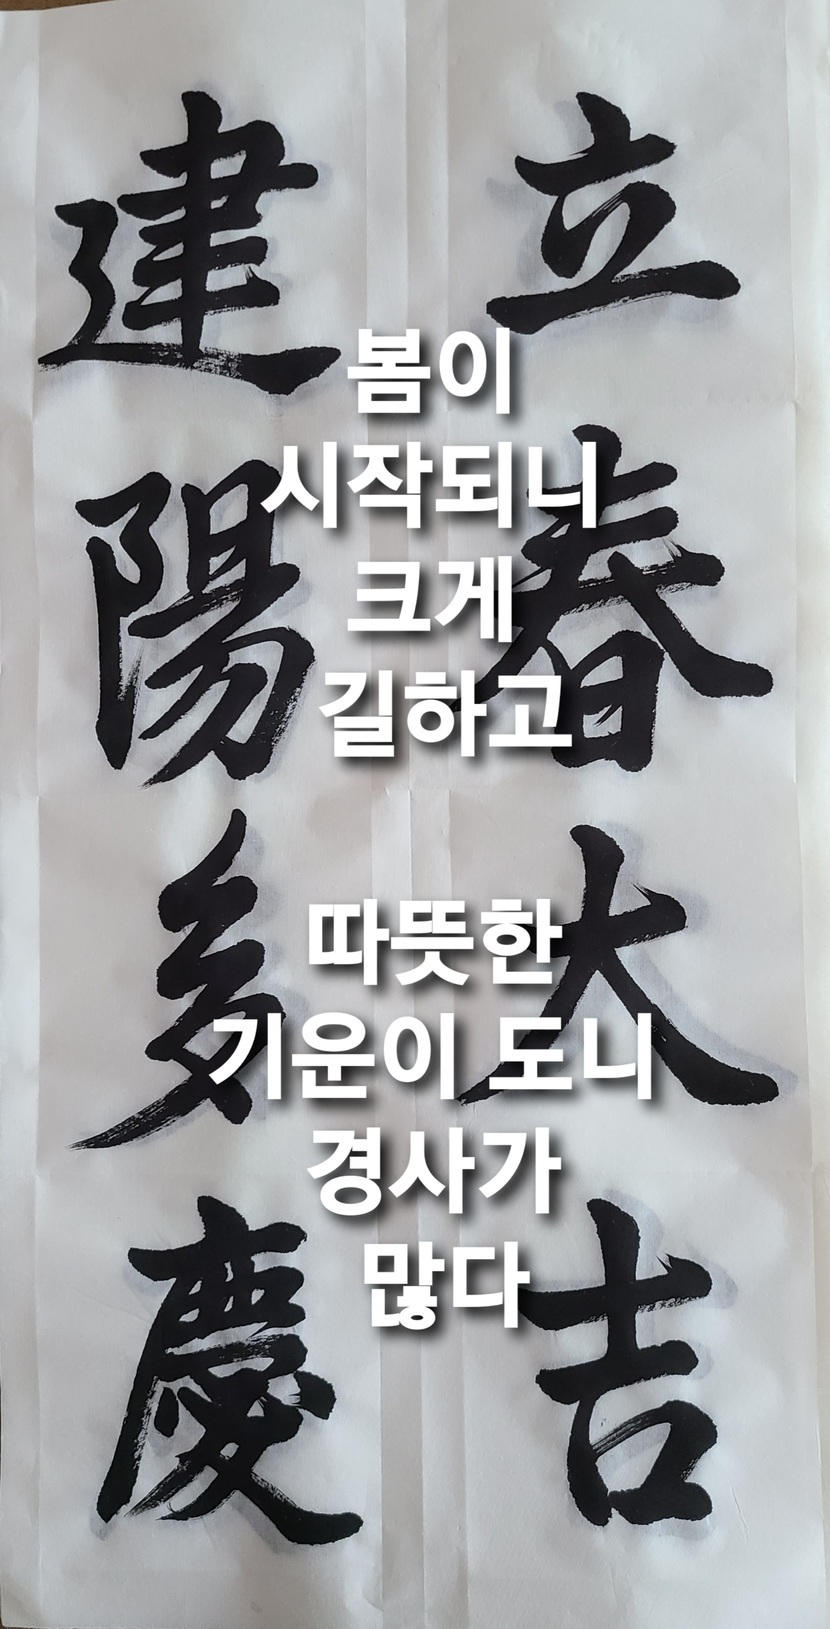 立春大吉
建陽多慶
봄이
시작되니
크게
길하고
따뜻한
기운이 도니
경사가
많다